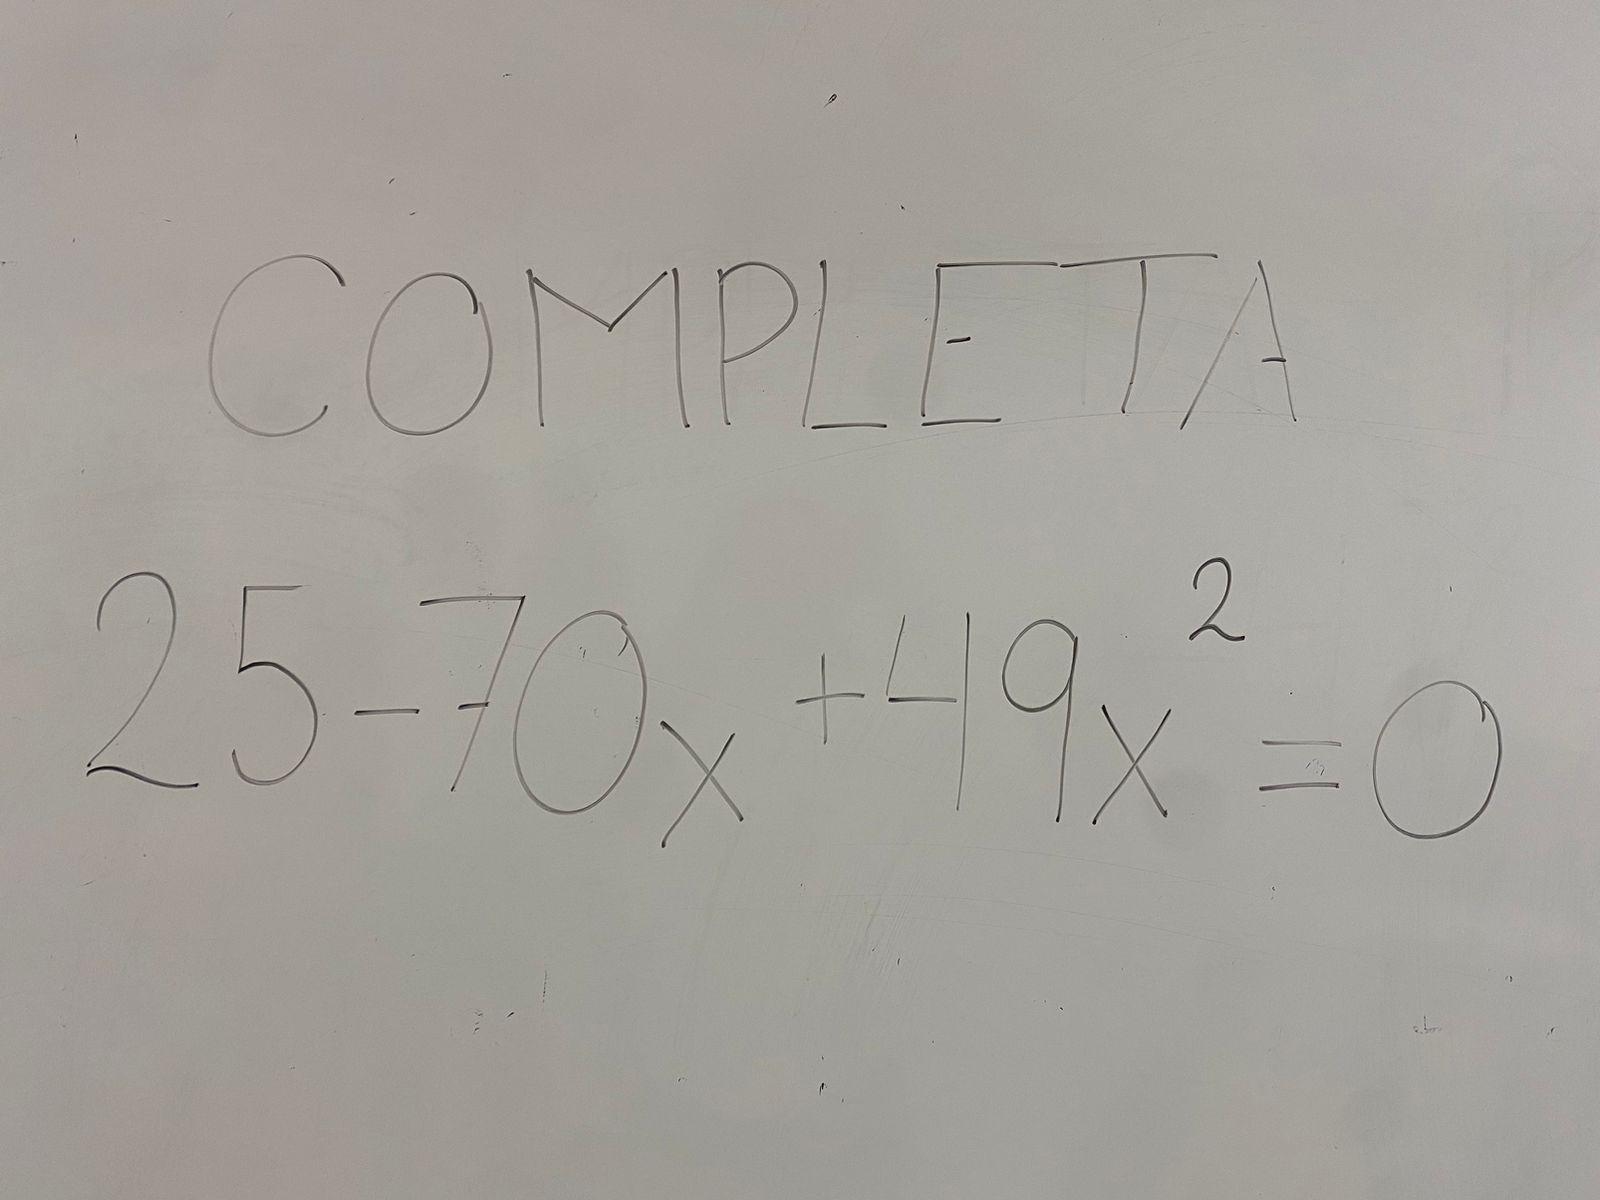 COMPLETA
25-70x+49x²=0